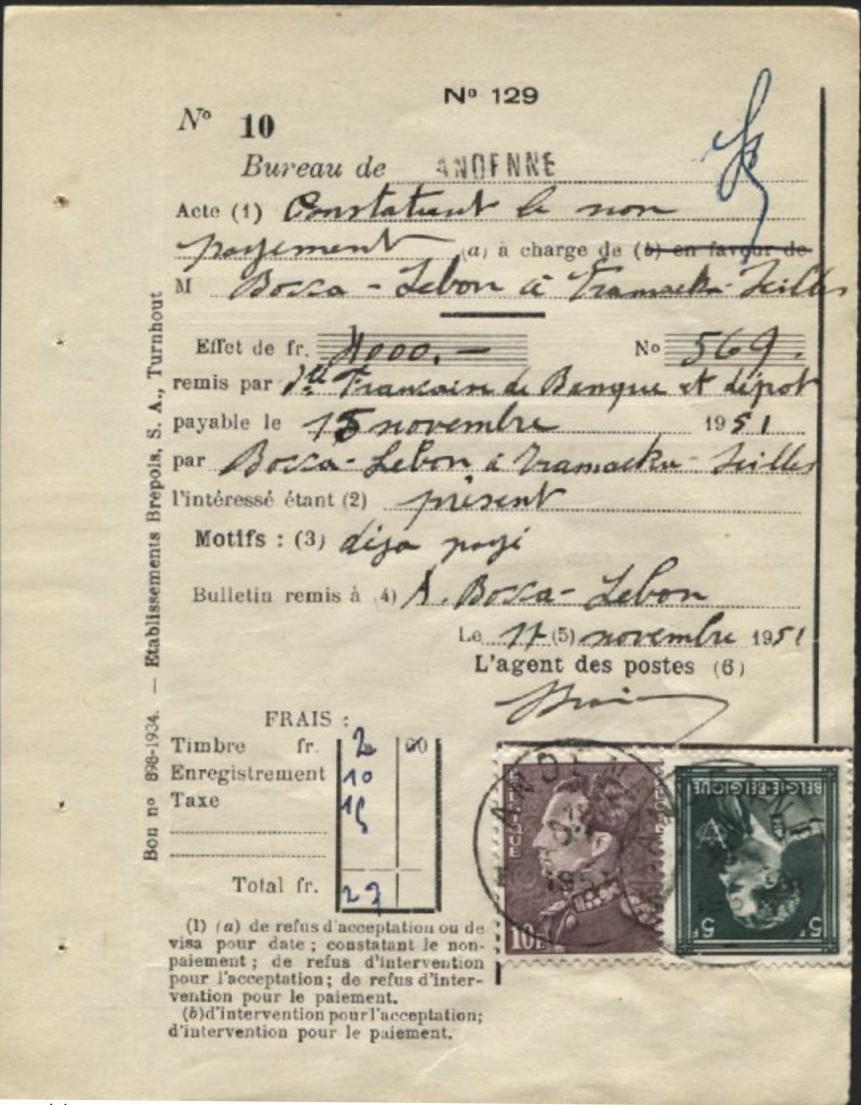 Nº 129
Nº 10
Bureau de ANDENNE
Acte (1) Constatant le non
payement (a) à charge de (b) en faveur de
M Bosca - Lebon à Seilles
Effet de fr. 1000.— Nº 569.
remis par Sté Francaise de Banque et dépot
payable le 15 novembre 1951
par Bosca - Lebon à Seilles
l'intéressé étant (2) présent
Motifs : (3) déja payé
Bulletin remis à (4) A. Bosca - Lebon
Le 17 (5) novembre 1951
L'agent des postes (6)
FRAIS :
Timbre fr. 2 00
Enregistrement 10
Taxe 15
Total fr. 27
(1) (a) de refus d'acceptation ou de
visa pour date ; constatant le non-
paiement ; de refus d'intervention
pour l'acceptation; de refus d'inter-
vention pour le paiement.
(b) d'intervention pour l'acceptation;
d'intervention pour le paiement.
Bon nº 898-1934. — Etablissements Brepols, S. A., Turnhout
BELGIQUE
10F
1951
BELGIE-BELGIQUE
5F
5F